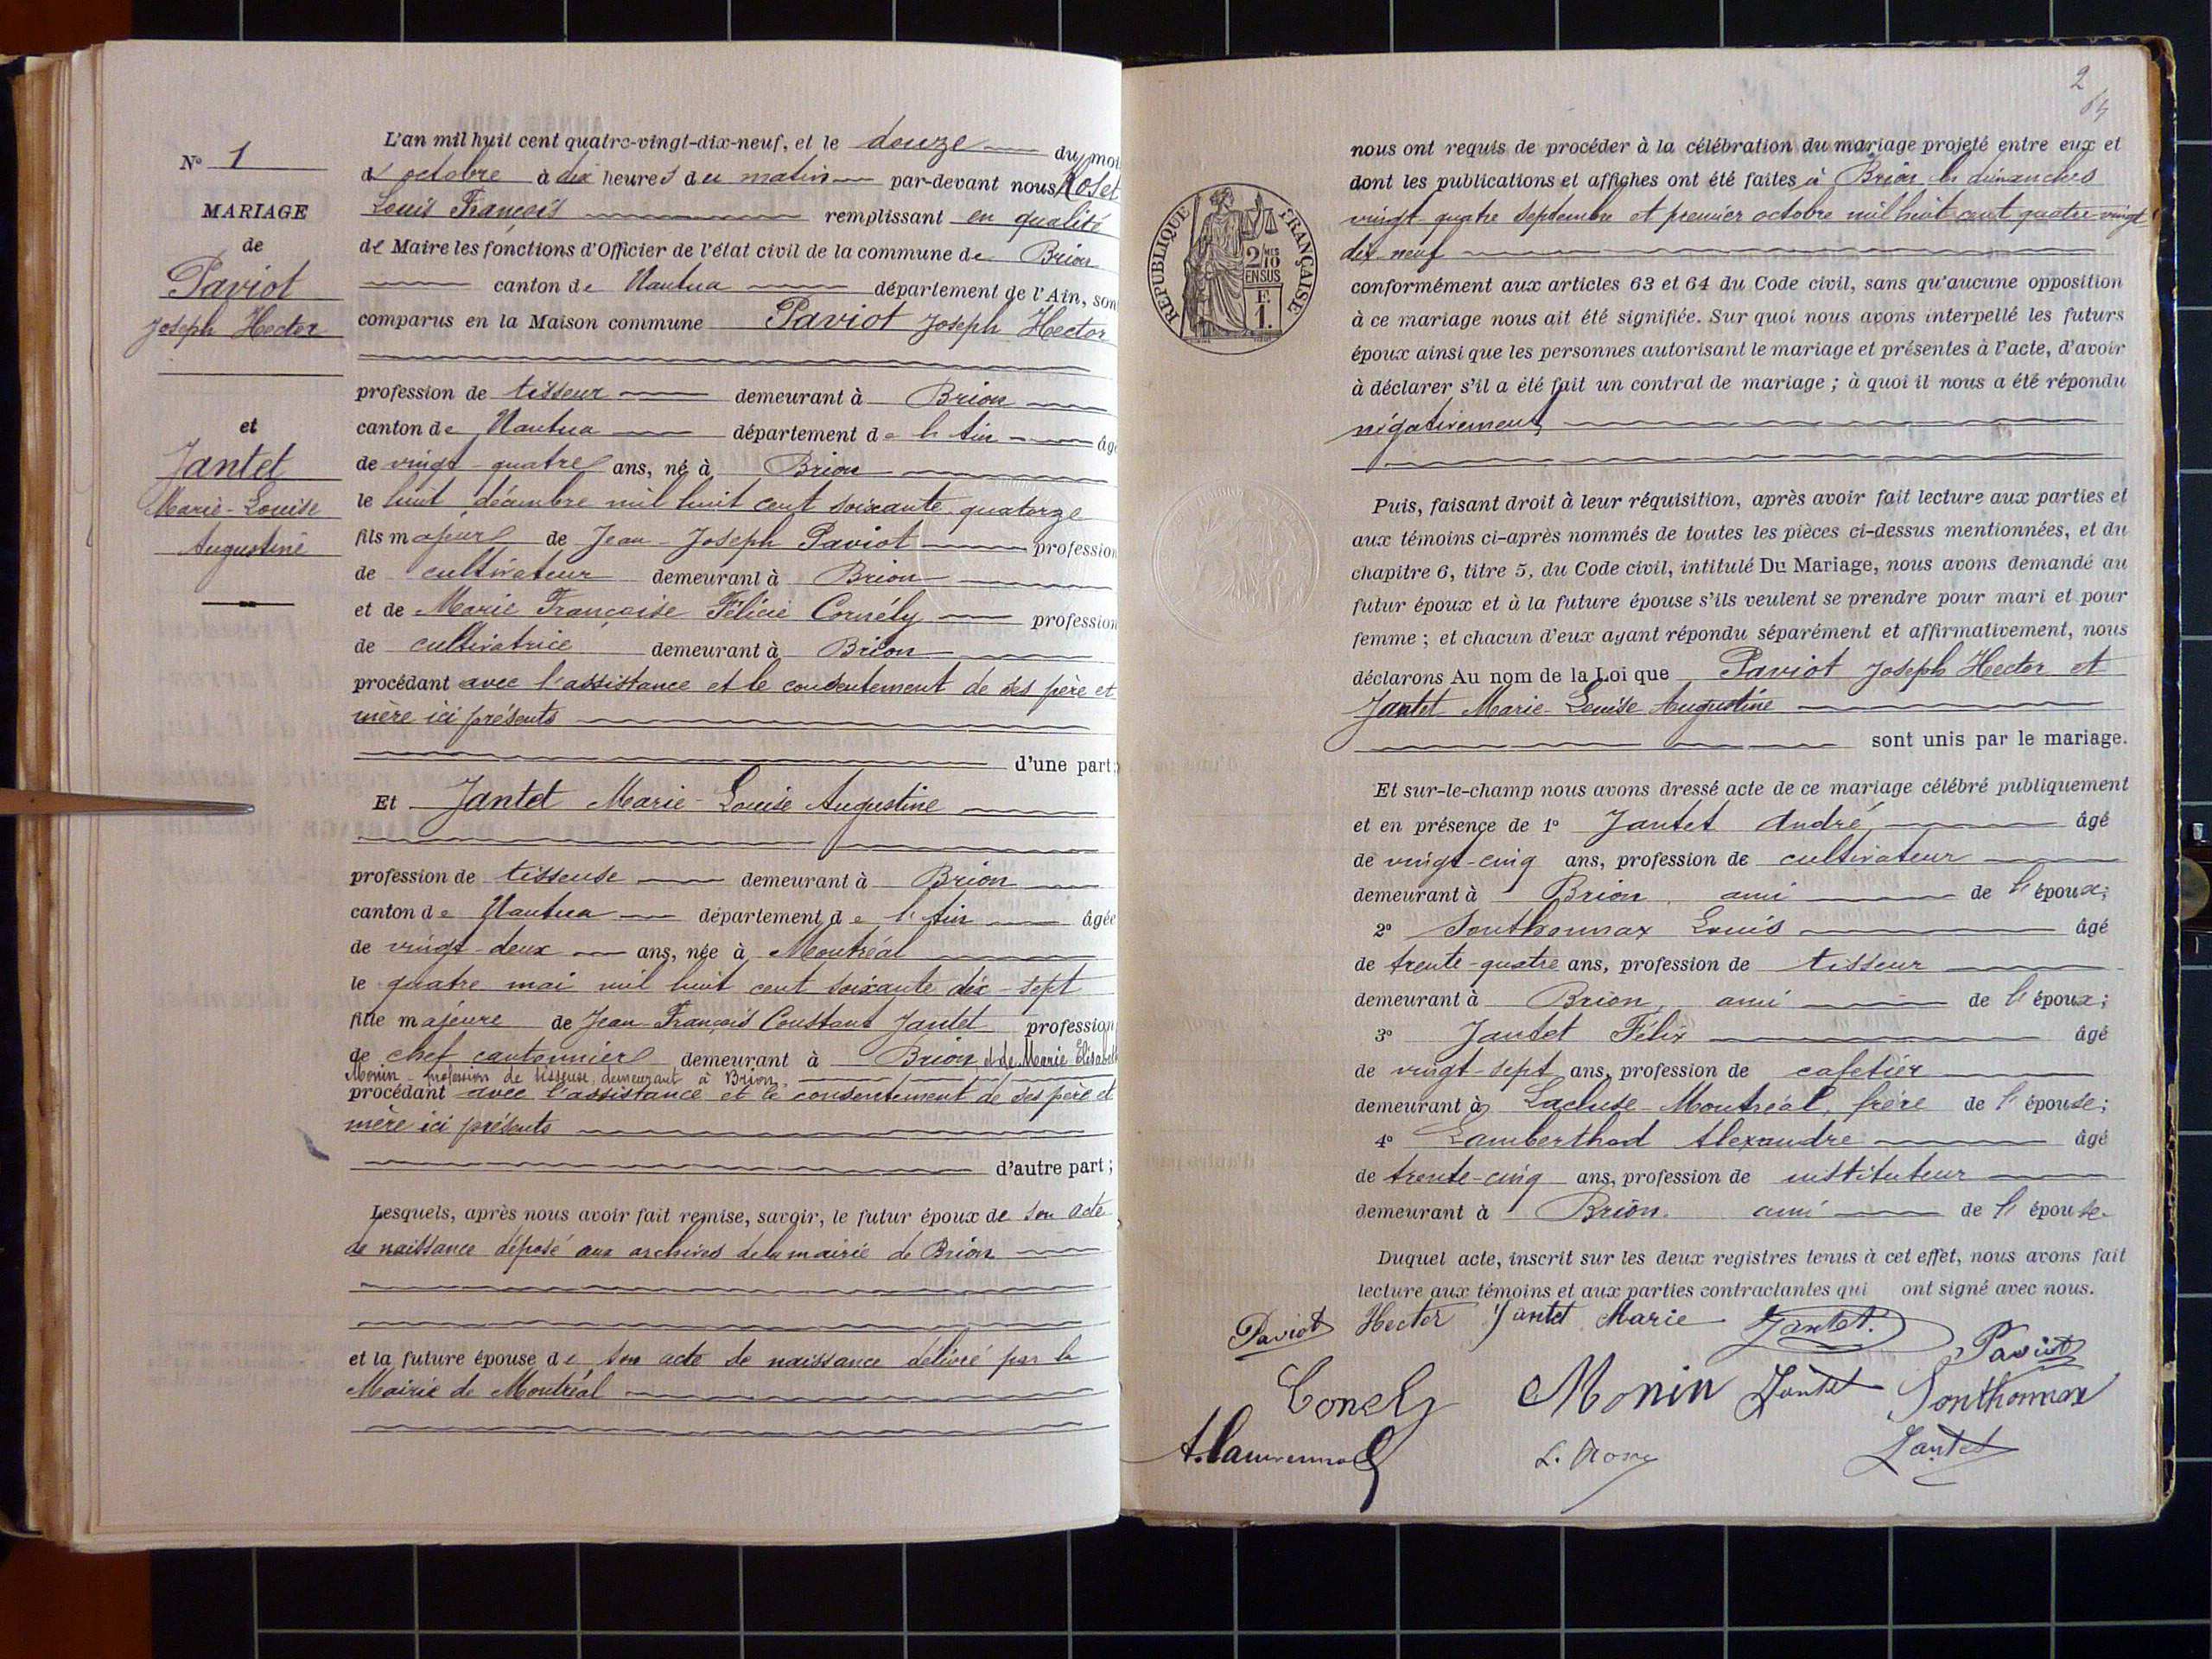 N° 1
MARIAGE
de
Paviot
Joseph Hector
et
Jantet
Marie-Louise
Augustine
L'an mil huit cent quatre-vingt-dix-neuf, et le douze du mois
d'octobre à dix heures du matin par-devant nous Roset
Louis François remplissant en qualité
de Maire les fonctions d'Officier de l'état civil de la commune de Brion
canton de Nantua département de l'Ain, sont
comparus en la Maison commune Paviot Joseph Hector
profession de tisseur demeurant à Brion
canton de Nantua département de l'Ain âgé
de vingt-quatre ans, né à Brion
le huit décembre mil huit cent soixante quatorze
fils majeur de Jean-Joseph Paviot profession
de cultivateur demeurant à Brion
et de Marie Françoise Félicie Cornély profession
de cultivatrice demeurant à Brion
procédant avec l'assistance et le consentement de ses père et
mère ici présents
d'une part;
Et Jantet Marie-Louise Augustine
profession de tisseuse demeurant à Brion
canton de Nantua département de l'Ain âgée
de vingt-deux ans, née à Montréal
le quatre mai mil huit cent soixante dix-sept
fille majeure de Jean-François Constant Jantet profession
de chef cantonnier demeurant à Brion, et de Marie Elisabeth
Monin profession de tisseuse, demeurant à Brion,
procédant avec l'assistance et le consentement de ses père et
mère ici présents
d'autre part;
Lesquels, après nous avoir fait remise, savoir, le futur époux de son acte
de naissance déposé aux archives de la mairie de Brion
et la future épouse de son acte de naissance délivré par la
Mairie de Montréal
2
REPUBLIQUE FRANÇAISE
2/10 MES
EN SUS
F.
1.
nous ont requis de procéder à la célébration du mariage projeté entre eux et
dont les publications et affiches ont été faites à Brion les dimanches
vingt-quatre septembre et premier octobre mil huit cent quatre-vingt-
dix neuf
conformément aux articles 63 et 64 du Code civil, sans qu'aucune opposition
à ce mariage nous ait été signifiée. Sur quoi nous avons interpellé les futurs
époux ainsi que les personnes autorisant le mariage et présentes à l'acte, d'avoir
à déclarer s'il a été fait un contrat de mariage; à quoi il nous a été répondu
négativement
Puis, faisant droit à leur réquisition, après avoir fait lecture aux parties et
aux témoins ci-après nommés de toutes les pièces ci-dessus mentionnées, et du
chapitre 6, titre 5, du Code civil, intitulé Du Mariage, nous avons demandé au
futur époux et à la future épouse s'ils veulent se prendre pour mari et pour
femme; et chacun d'eux ayant répondu séparément et affirmativement, nous
déclarons Au nom de la Loi que Paviot Joseph Hector et
Jantet Marie-Louise Augustine
sont unis par le mariage.
Et sur-le-champ nous avons dressé acte de ce mariage célébré publiquement
et en présence de 1° Jantet André, âgé
de vingt-cinq ans, profession de cultivateur
demeurant à Brion, ami de l'époux;
2° Sonthonnax Louis âgé
de trente-quatre ans, profession de tisseur
demeurant à Brion, ami de l'époux;
3° Jantet Félix âgé
de vingt-sept ans, profession de cafetier
demeurant à Lacluse-Montréal, frère de l'épouse;
4° Lamberthod Alexandre âgé
de trente-cinq ans, profession de instituteur
demeurant à Brion. ami de l'épouse.
Duquel acte, inscrit sur les deux registres tenus à cet effet, nous avons fait
lecture aux témoins et aux parties contractantes qui ont signé avec nous.
Paviot Hector Jantet Marie Jantet. Paviot
Conely Monin Jantet Sonthonnax
Jantet